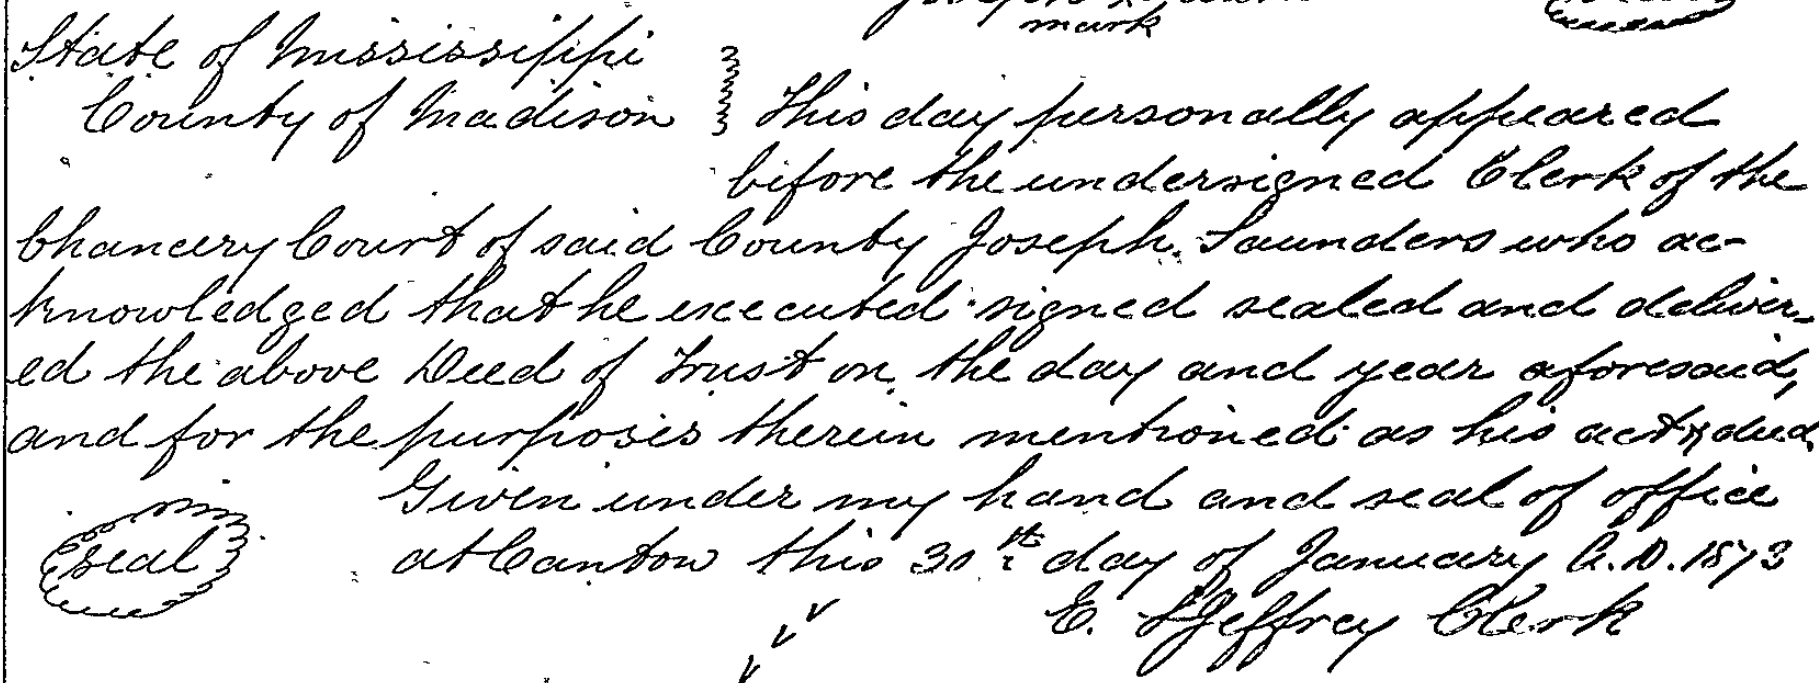 mark
State of Mississippi
County of Madison } This day personally appeared
before the undersigned Clerk of the
Chancery Court of said County Joseph Saunders who ac-
knowledged that he executed signed sealed and deliver-
ed the above Deed of Trust on the day and year aforesaid,
and for the purposes therein mentioned as his act & deed.
Given under my hand and seal of office
seal at Canton this 30th day of January A.D. 1873
E. S Jeffrey Clerk